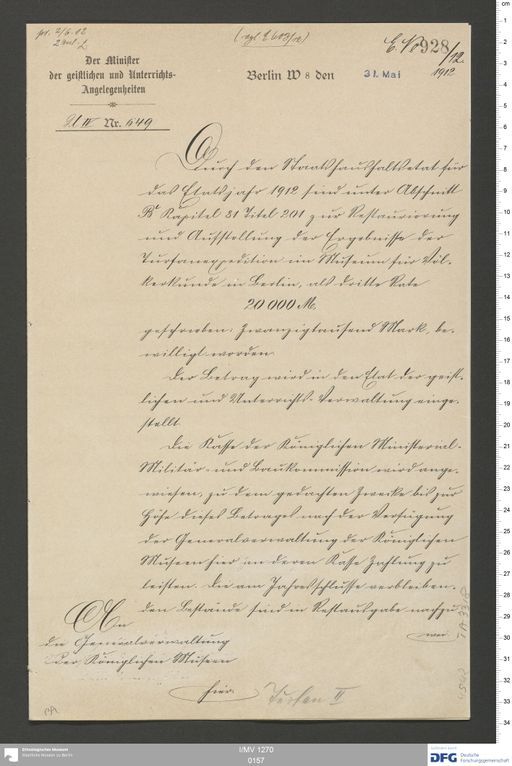 pr. 2/6. 12
E. No 928/12.
Der Minister
der geistlichen und Unterrichts-
Angelegenheiten
Berlin W 8 den 31. Mai 1912
U IV Nr. 649
Durch den Staatshaushaltsetat für
das Etatsjahr 1912 sind unter Abschnitt
B Kapitel 31 Titel 201 zur Restaurierung
und Aufstellung der Ergebnisse der
Turfanexpedition im Museum für Völ-
kerkunde in Berlin, als dritte Rate
20 000 M,
geschrieben: Zwanzigtausend Mark, be-
willigt worden.
Der Betrag wird in den Etat der geist-
lichen und Unterrichts-Verwaltung einge-
stellt.
Die Kasse der Königlichen Ministerial-
Militär- und Baukommission wird ange-
wiesen, zu dem gedachten Zwecke bis zur
Höhe dieses Betrages nach der Verfügung
der Generalverwaltung der Königlichen
Museen hier an deren Kasse Zahlung zu
leisten. Die am Jahresschlusse verbleiben-
den Bestände sind in Restausgabe nachzu-
An
die Generalverwaltung
der Königlichen Museen
hier
Turfan II
Ethnologisches Museum
Staatliche Museen zu Berlin
I/MV 1270
0157
DFG Deutsche
Forschungsgemeinschaft